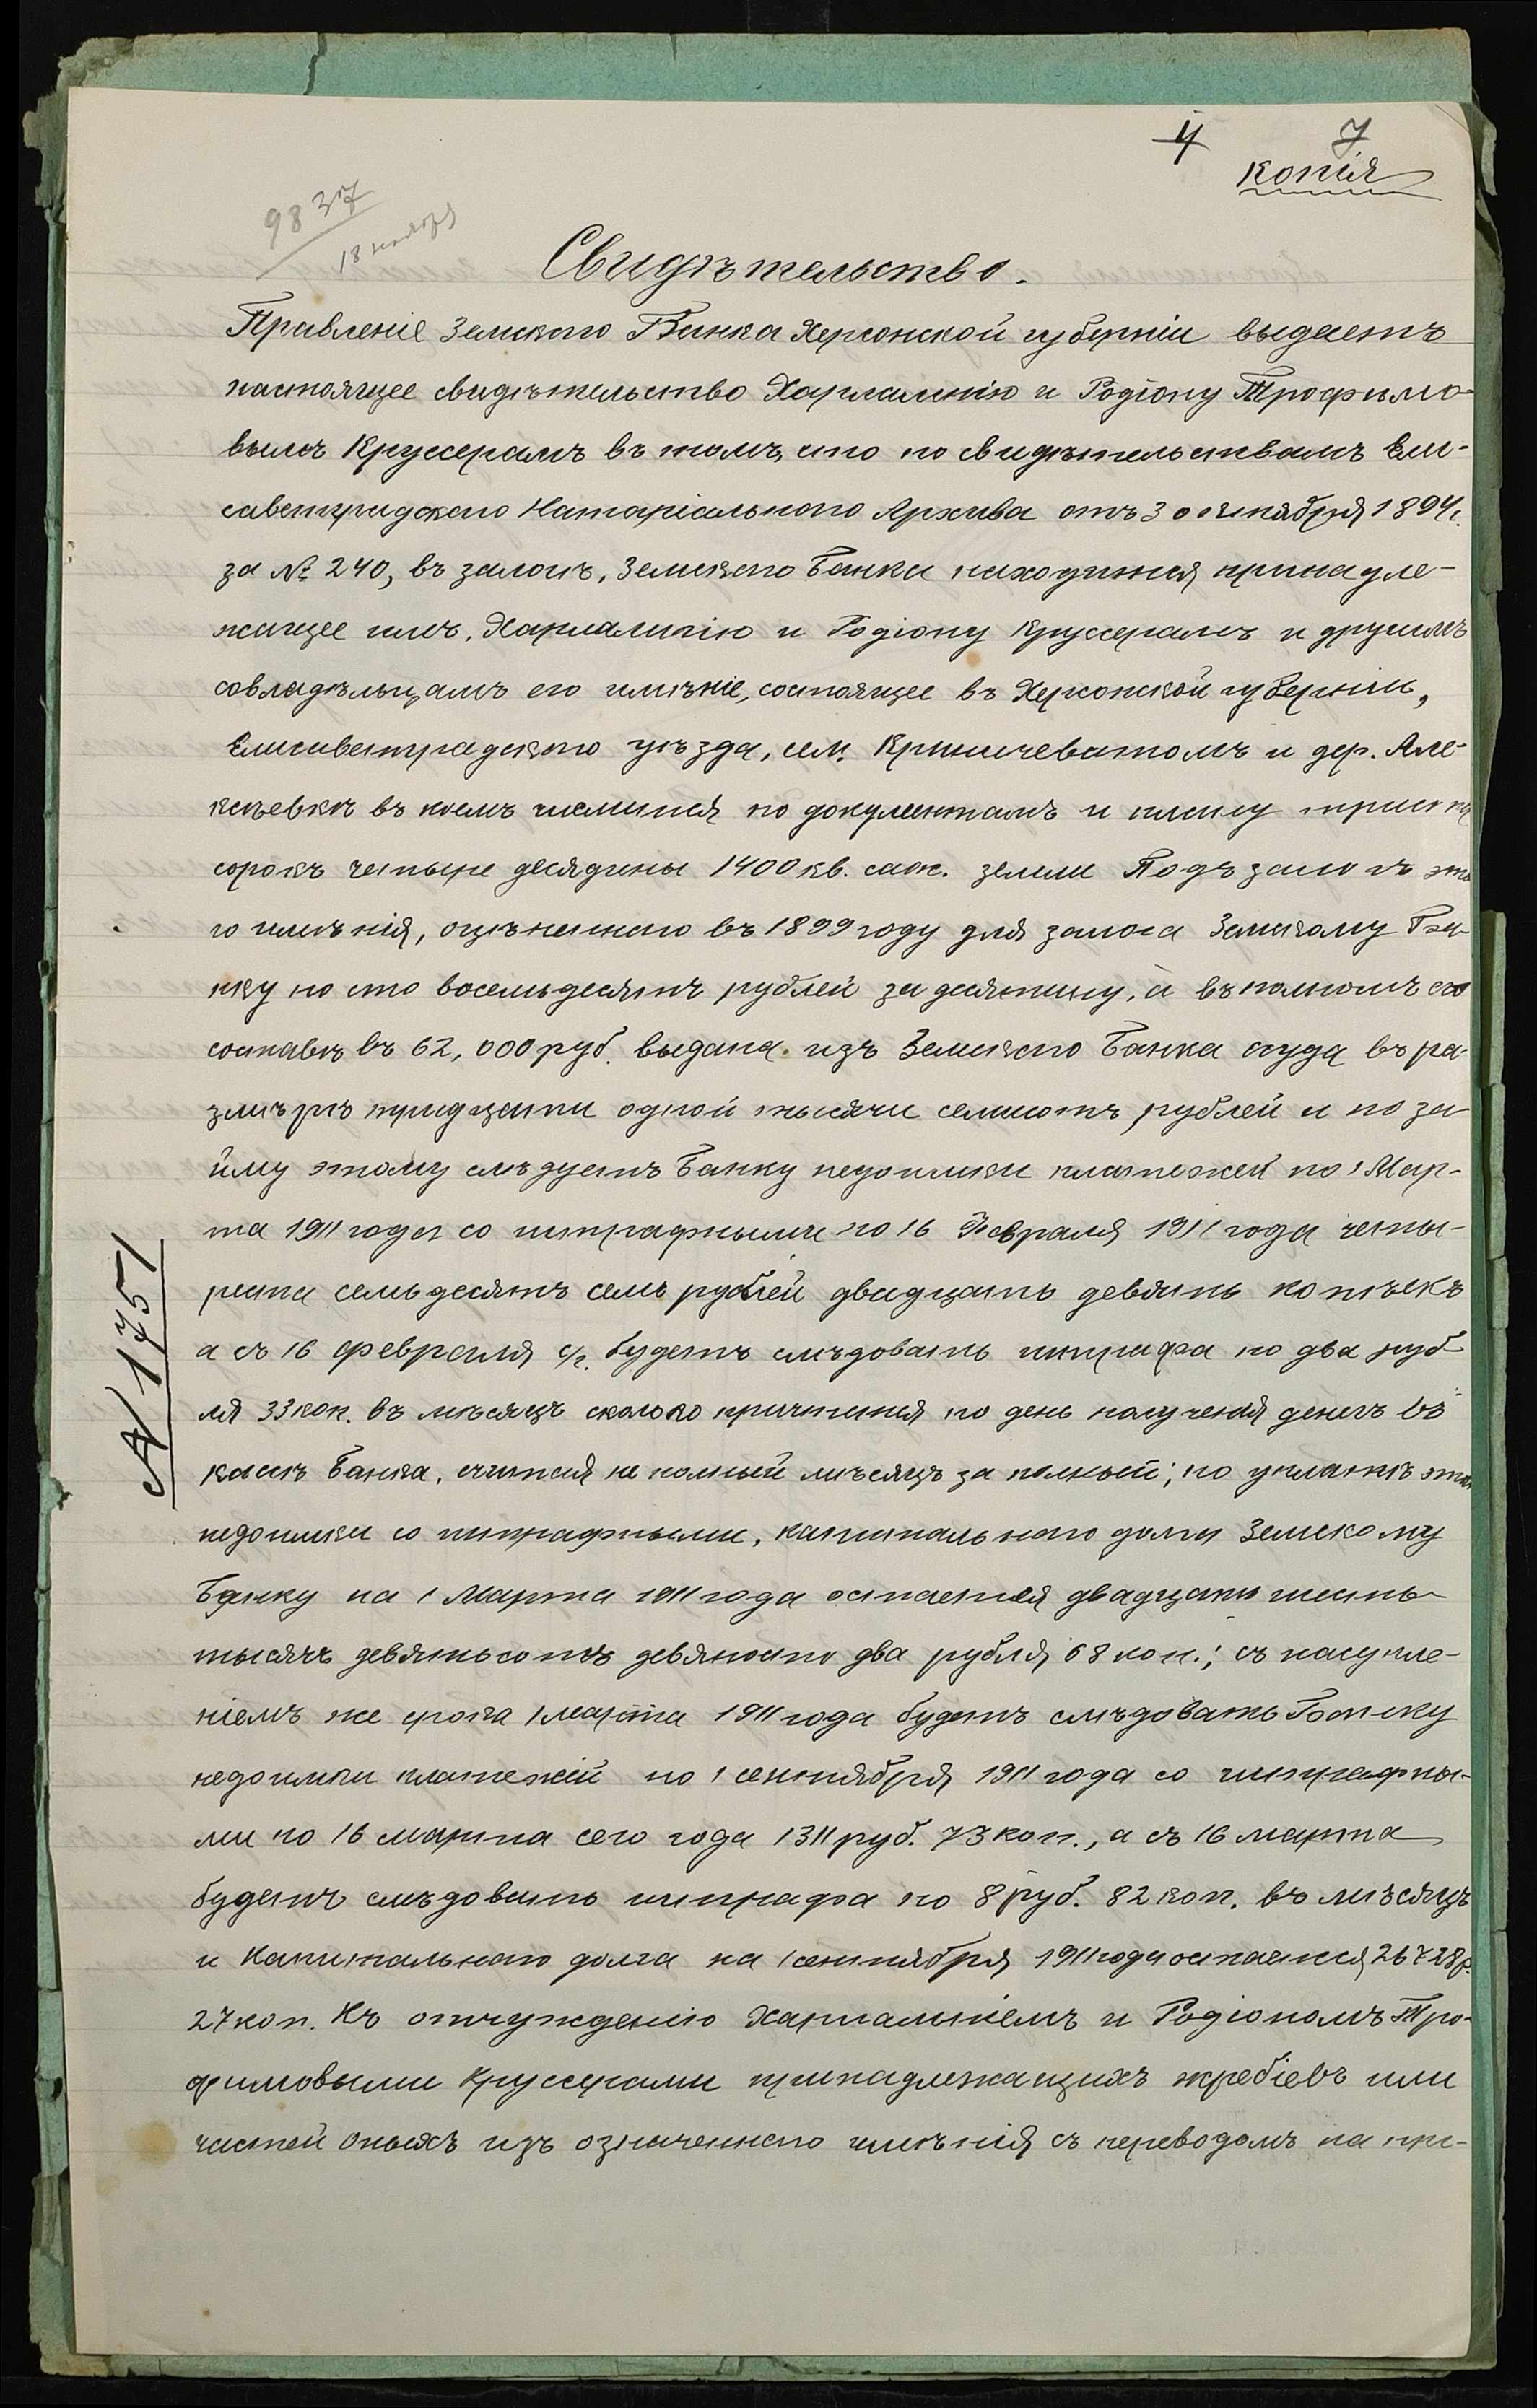 4 7
копія
9837
18 ноября
Свидѣтельство.
Правленіе Земскаго Банка Херсонской губерніи выдаетъ
настоящее свидѣтельство Харлампію и Родіону Трофимо-
вымъ Круссерамъ въ томъ, что по свидѣтельствамъ Ели-
саветградскаго Натаріальнаго Архива отъ 30 октября 1894г.
за № 240, въ залогѣ, Земскаго Банка находится принадле-
жащее имъ, Харлампію и Родіону Круссерамъ и другимъ
совладѣльцамъ его имѣніе, состоящее въ Херсонской губерніи,
Елисаветградскаго уѣзда, сел. Криничеватомъ и дер. Але-
ксѣевкѣ въ коемъ числится по документамъ и плану триста
сорокъ четыре десядины 1400 кв. саж. земли Подъ залогъ это
го имѣнія, оцѣненнаго въ 1899 году для залога Земскому Бан-
ку по сто восемьдесятъ рублей за десятину, а въ полномъ его
составѣ въ 62,000 руб. выдана изъ Земскаго Банка ссуда въ ра-
змѣрѣ тридцати одной тысячи семисотъ рублей и по за-
йму этому слѣдуетъ Банку недоимки платежей по 1 Мар-
та 1911 года со штрафными по 16 Февраля 1911 года четы-
реста семьдесятъ семь рублей двадцать девять копѣекъ
а съ 16 февраля с/г. будетъ слѣдовать штрафа по два руб-
ля 33 коп. въ мѣсяцъ сколько причтется по день полученія денегъ въ
кассѣ Банка, считая не полный мѣсяцъ за полный; по уплатѣ этой
недоимки со штрафными, капитальнаго долга Земскому
Банку на 1 Марта 1911 года остается двадцать шесть
тысячъ девятьсотъ девяносто два рубля 68 коп.; съ насупле-
ніемъ же срока 1 марта 1911 года будетъ слѣдовать Банку
недоимки платежей по 1 сентября 1911 года со штрафны-
ми по 16 марта сего года 1311 руб. 73 коп., а съ 16 марта
будетъ слѣдовать штрафа по 8 руб. 82 коп. въ мѣсяцъ
и Капитальнаго долга на 1 сентября 1911 года остается 26728р.
27 коп. Къ отчужденію Харлампіемъ и Родіономъ Тро-
фимовыми Круссерами принадлежащихъ жребіевъ или
частей оныхъ изъ означеннаго имѣнія съ переводомъ на прі-
№ 1751